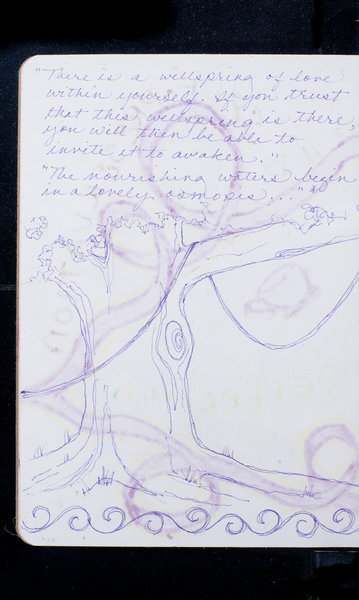 "There is a wellspring of love
within yourself. If you trust
that this wellspring is there,
you will then be able to
invite it to awaken."
"The nourishing waters begin
in a lovely osmosis..."*